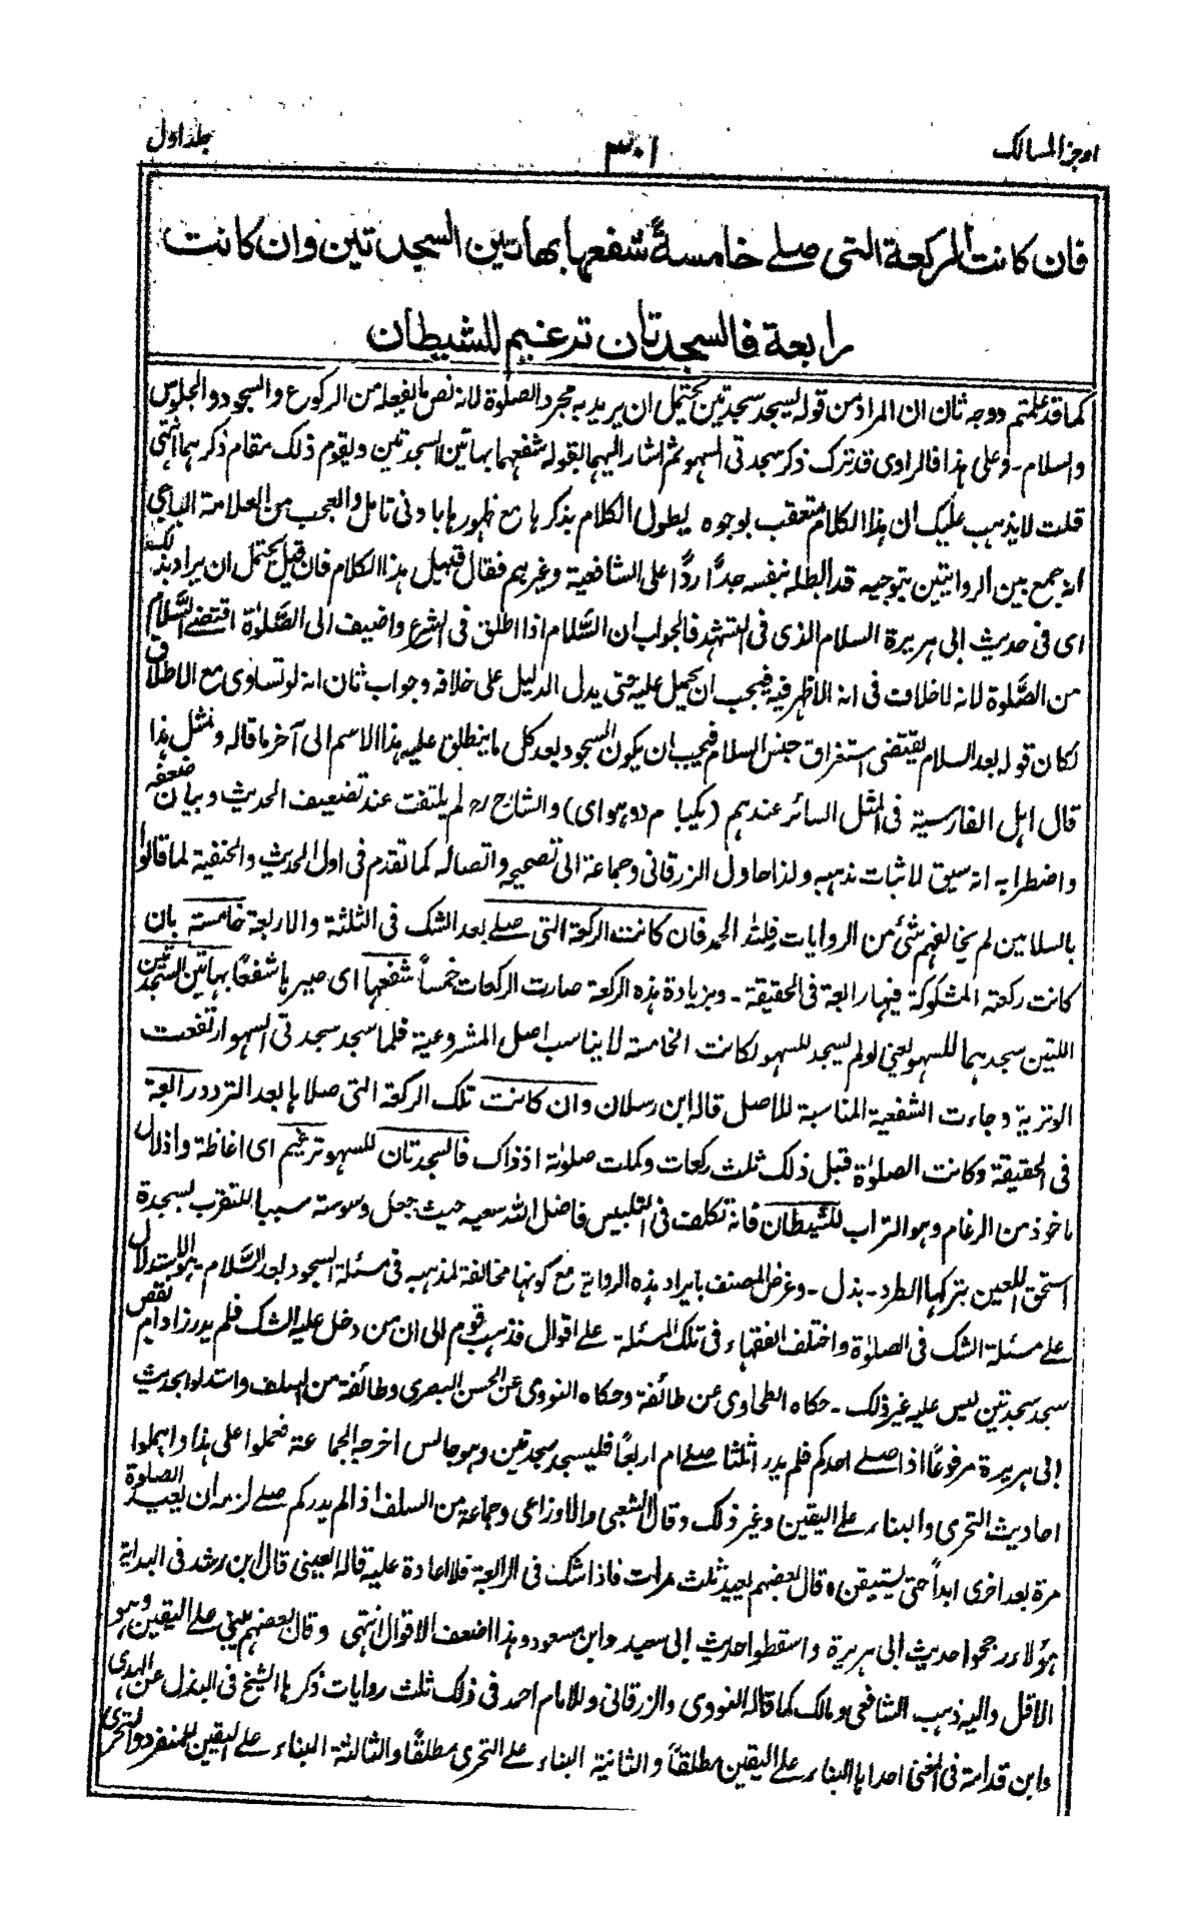 اوجز المسالك ٣٠١ جلد اول
فان كانت الركعة التى صلے خامسةً شفعها بهاتين السجدتين وان كانت
رابعة فالسجدتان ترغيم للشيطان
كما قد علمتم ووجه ثان ان المراد من قوله ليسجد سجدتين يحتمل ان يريد به مجرد الصلوة لانه نص بالفعله من الركوع والسجود والجلوس
والسلام ۔ وعلى هذا فالراوى قد ترك ذكر سجدتى السهو ثم اشار اليهما بقوله شفعهما بهاتين السجدتين ويقوم ذلك مقام ذكرهما انتهى
قلت لا يذهب عليك ان هذا الكلام متعقب بوجوه يطول الكلام بذكرها مع ظهورها بادنى تامل والعجب من العلامة الباجى
انه جمع بين الروايتين بتوجيه قد ابطله بنفسه جداً رداً على الشافعية وغيرهم فقال قبيل هذا الكلام فان قيل يحتمل ان يراد بذلك
اى فى حديث ابى هريرة السلام الذى فى التشهد فالجواب ان السَّلام اذا اطلق فى الشرع واضيف الى الصَّلوٰة اقتضے السَّلام
من الصَّلوة لانه لا خلاف فى انه الاظهر فيه فيجب ان يحمل عليه حتى يدل الدليل على خلافه وجواب ثان انه لو تساوى مع الاطلاق
لكان قوله بعد السلام يقتضى استغراق جنس السلام فيجب ان يكون السجود بعد كل ما ينطلق عليه هذا الاسم الى آخر ما قاله ومثل هذا
قال اهل الفارسية فى المثل السائر عندهم (يكبام ودوہواى) والشارح رہ لم يلتفت عند تضعيف الحديث وبيان ضعفه
واضطرابه انه سيق لاثبات مذهبه ولذا حاول الزرقانى وجماعة الى تصحيحه واتصاله كما تقدم فى اول الحديث والحنفية لما قالوا
بالسلامين لم يخالفهم شئ من الروايات فلله الحمد فان كانت الركعة التى صلے بعد الشك فى الثلثة والاربعة خامسة بان
كانت ركعته المشكوكة فيها رابعة فى الحقيقة ۔ وبزيادة هذه الركعة صارت الركعات خمساً شفعها اى صيرها شفعًا بهاتين السجدتين
اللتين سجدهما للسهو يعنى لو لم يسجد للسهو لكانت الخامسة لا يناسب اصل المشروعية فلما سجد سجدتى السهو ارتفعت
الوترية وجاءت الشفعية المناسبة للاصل قاله ابن رسلان وان كانت تلك الركعة التى صلاها بعد التردد رابعة
فى الحقيقة وكانت الصلوٰة قبل ذلك ثلث ركعات وكملت صلوٰته اذ ذاك فالسجدتان للسهو ترغيم اى اغاظة واذلال
ماخوذ من الرغام وهو التراب للشيطان فانه تكلف فى التلبيس فاضل الله سعيه حيث جعل وسوسته سببا للتقرب بسجدة
استحق اللعين بتركها الطرد ۔ بذل ۔ وغرض المصنف بايراد هذه الرواية مع كونها مخالفة لمذهبه فى مسئلة السجود بعد السَّلام هو الاستدلال
علے مسئلة الشك فى الصلوٰة واختلف الفقهاء فى تلك المسئلة علے اقوال فذهب قوم الى ان من دخل عليه الشك فلم يدر زاد ام نقص
سجد سجدتين ليس عليه غير ذلك ۔ حكاه الطحاوى عن طائفة وحكاه النووى عن الحسن البصرى وطائفة من السلف واستدلوا بحديث
ابى هريرة مرفوعًا اذا صلے احدكم فلم يدر اثلثا صلے ام اربعًا فليسجد سجدتين وهو جالس اخرجه الجماعة فحملوا على هذا واهملوا
احاديث التحرى والبناء علے اليقين وغير ذلك وقال الشعبى والاوزاعى وجماعة من السلف اذا لم يدر كم صلے لزمه ان يعيد الصلوة
مرة بعد اخرى ابداً حتى يستيقن وقال بعضهم يعيد ثلث مرات فاذا شك فى الرابعة فلا اعادة عليه قاله العينى قال ابن رشد فى البداية
هؤلاء رجحوا حديث ابى هريرة واسقطوا حديث ابى سعيد وابن مسعود وهذا اضعف الاقوال انتهى وقال بعضهم يبنى علے اليقين وهو
الاقل واليه ذهب الشافعى ومالك كما قاله النووى والزرقانى وللامام احمد فى ذلك ثلث روايات ذكرها الشيخ فى البذل عن الهدى
وابن قدامة فى المغنى احداها البناء علے اليقين مطلقاً والثانية البناء علے التحرى مطلقًا والثالثة البناء علے اليقين للمنفرد والتحرى